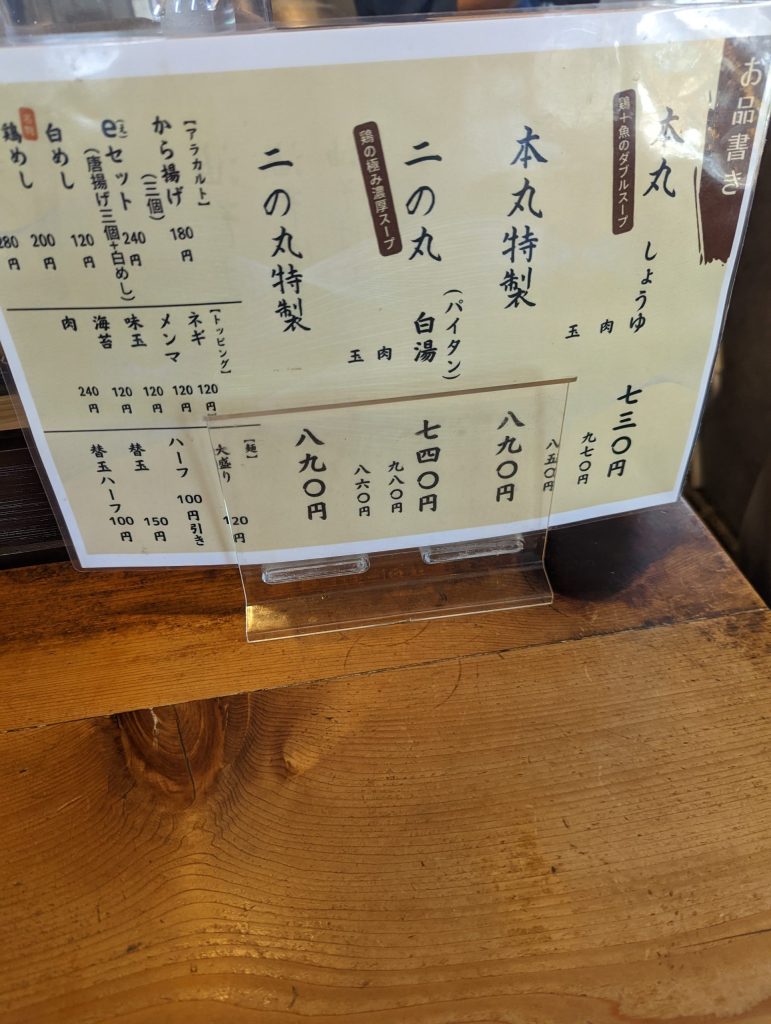 お品書き
鶏+魚のダブルスープ
本丸 しょうゆ 七三〇円
肉 九七〇円
玉 八五〇円
本丸特製 八九〇円
鶏の極み濃厚スープ
二の丸 (パイタン) 白湯 七四〇円
肉 九八〇円
玉 八六〇円
二の丸特製 八九〇円
【アラカルト】
から揚げ (三個) 180円
eセット 240円
(唐揚げ三個+白めし)
120円
白めし 200円
鶏めし 280円
【トッピング】
120円
ネギ 120円
メンマ 120円
味玉 120円
海苔 240円
肉
【麺】
大盛り 120
ハーフ 100円引き
替玉 150円
替玉ハーフ 100円